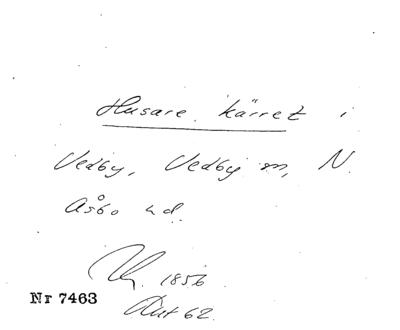 Husare kärret i
Vedby, Vedby m, N.
Åsbo hd.
1856
Nr 7463
62.